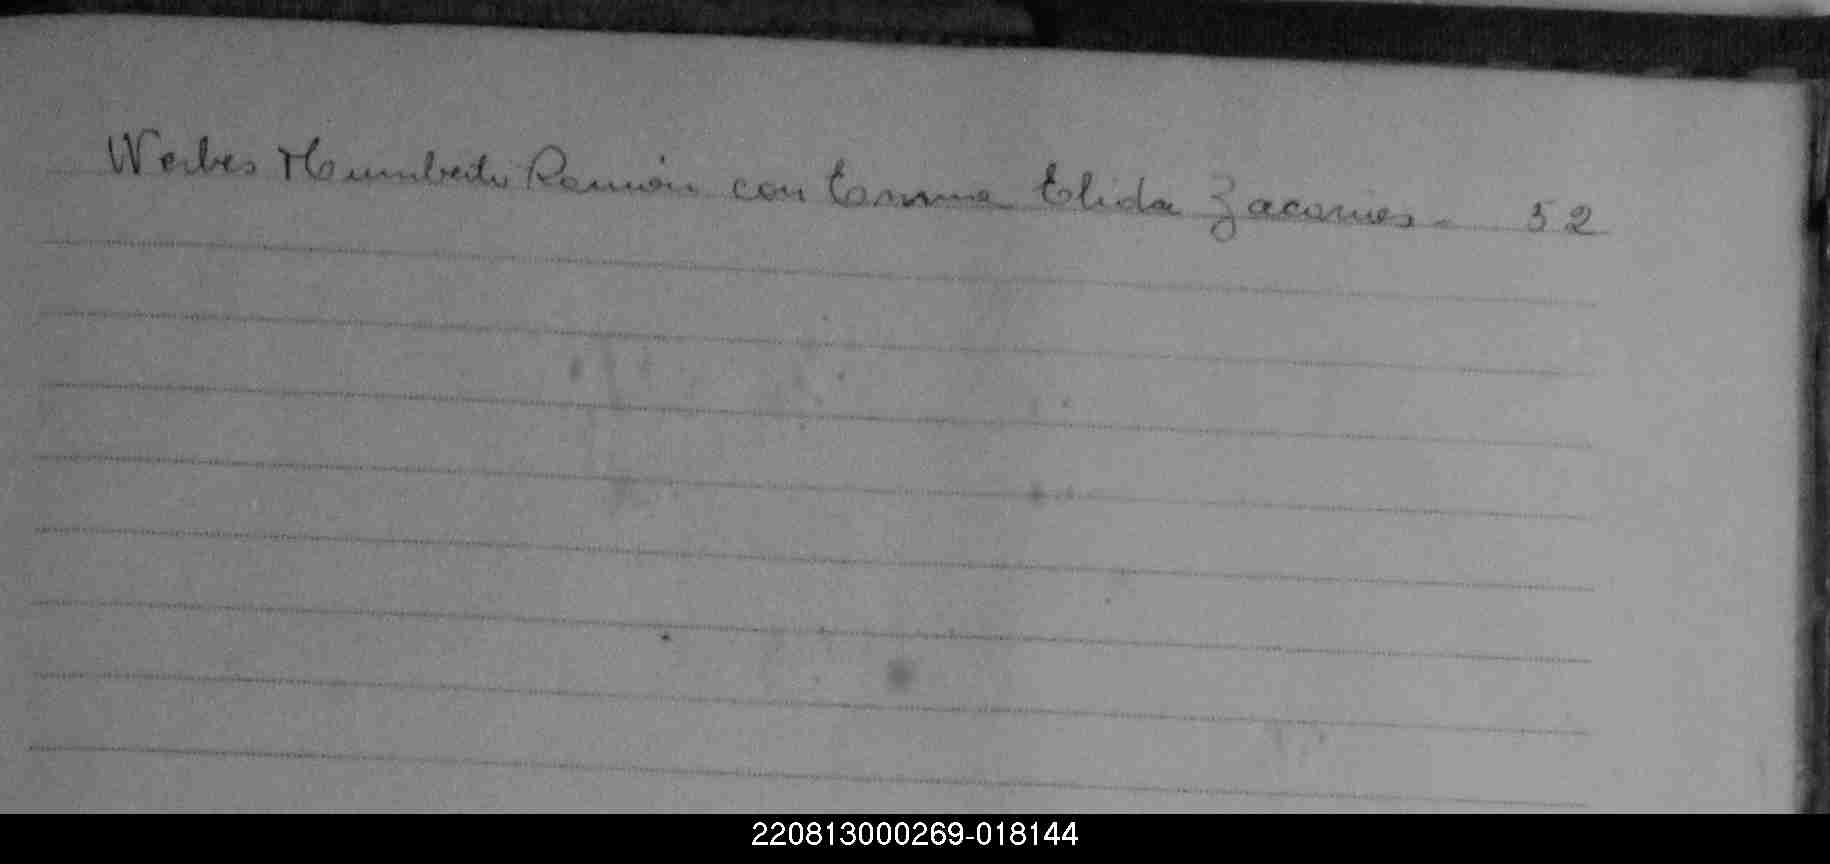 Werbes Humberto Ramón con Emma Elida Zacarias - 52
220813000269-018144